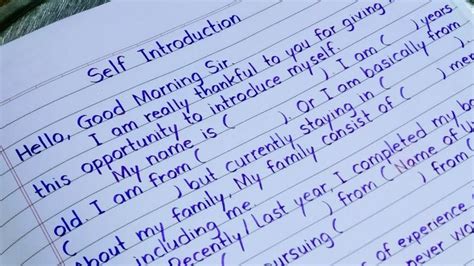 Self Introduction
Hello, Good Morning Sir.
I am really thankful to you for giving
this opportunity to introduce myself.
My name is ( ). I am ( ) years
old. I am from ( ). Or I am basically from
( ) but currently staying in (
About my family, My family consist of ( ) mem
including me.
Recently/Last year, I completed my
( ) from (Name of
pursuing ( ) from (
of experience
never